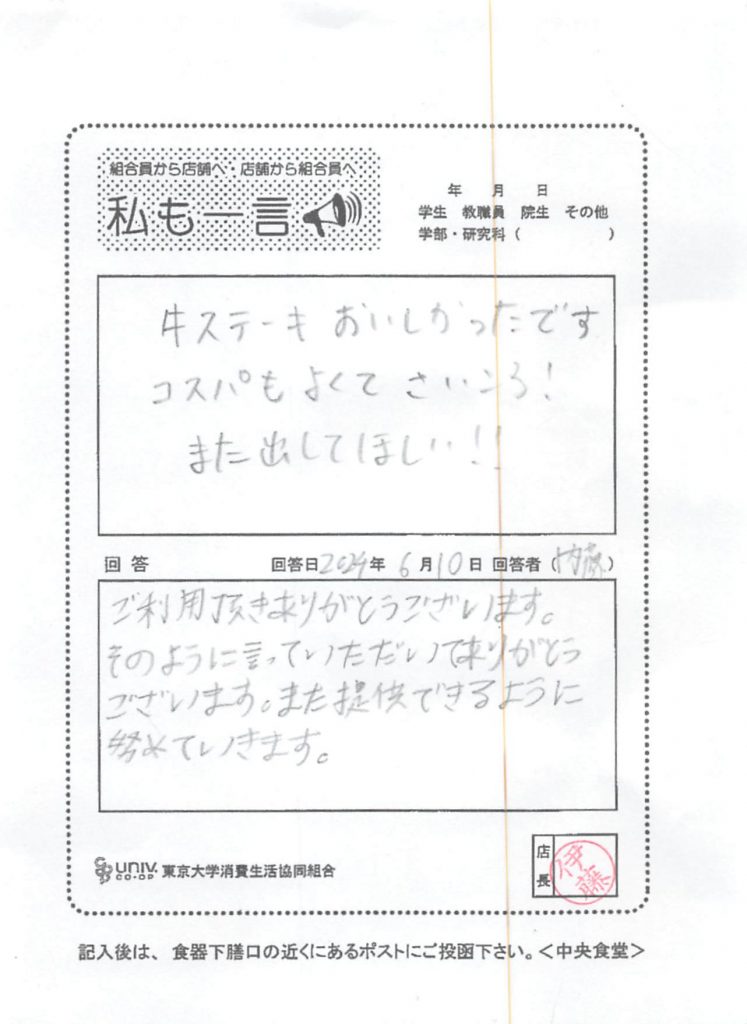 組合員から店舗へ・店舗から組合員へ
私も一言
年 月 日
学生 教職員 院生 その他
学部・研究科 ( )
牛ステーキ おいしかったです
コスパもよくて さいころ!
また出してほしい!!
回答 回答日2024年 6月10日 回答者 (内藤)
ご利用頂きありがとうございます。
そのように言っていただいてありがとう
ございます。また提供できるように
努めていきます。
UNIV. CO-OP 東京大学消費生活協同組合
店長 伊藤
記入後は、食器下膳口の近くにあるポストにご投函下さい。<中央食堂>